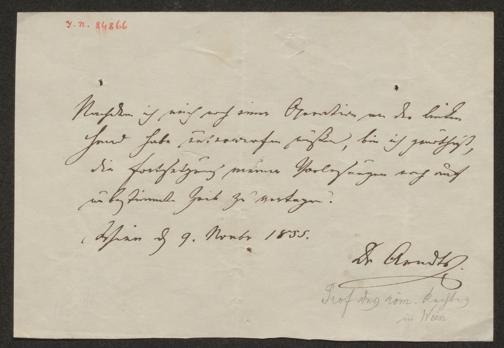 J. N. 84866
Nachdem ich mich noch einer Operation an der linken
Hand habe unterwerfen müßen, bin ich genöthigt,
die Fortsetzung meiner Vorlesungen noch auf
unbestimmte Zeit zu vertagen.
Wien d 9. Novbr 1855.
Dr Arndts.
Prof des röm. Rechtes
in Wien